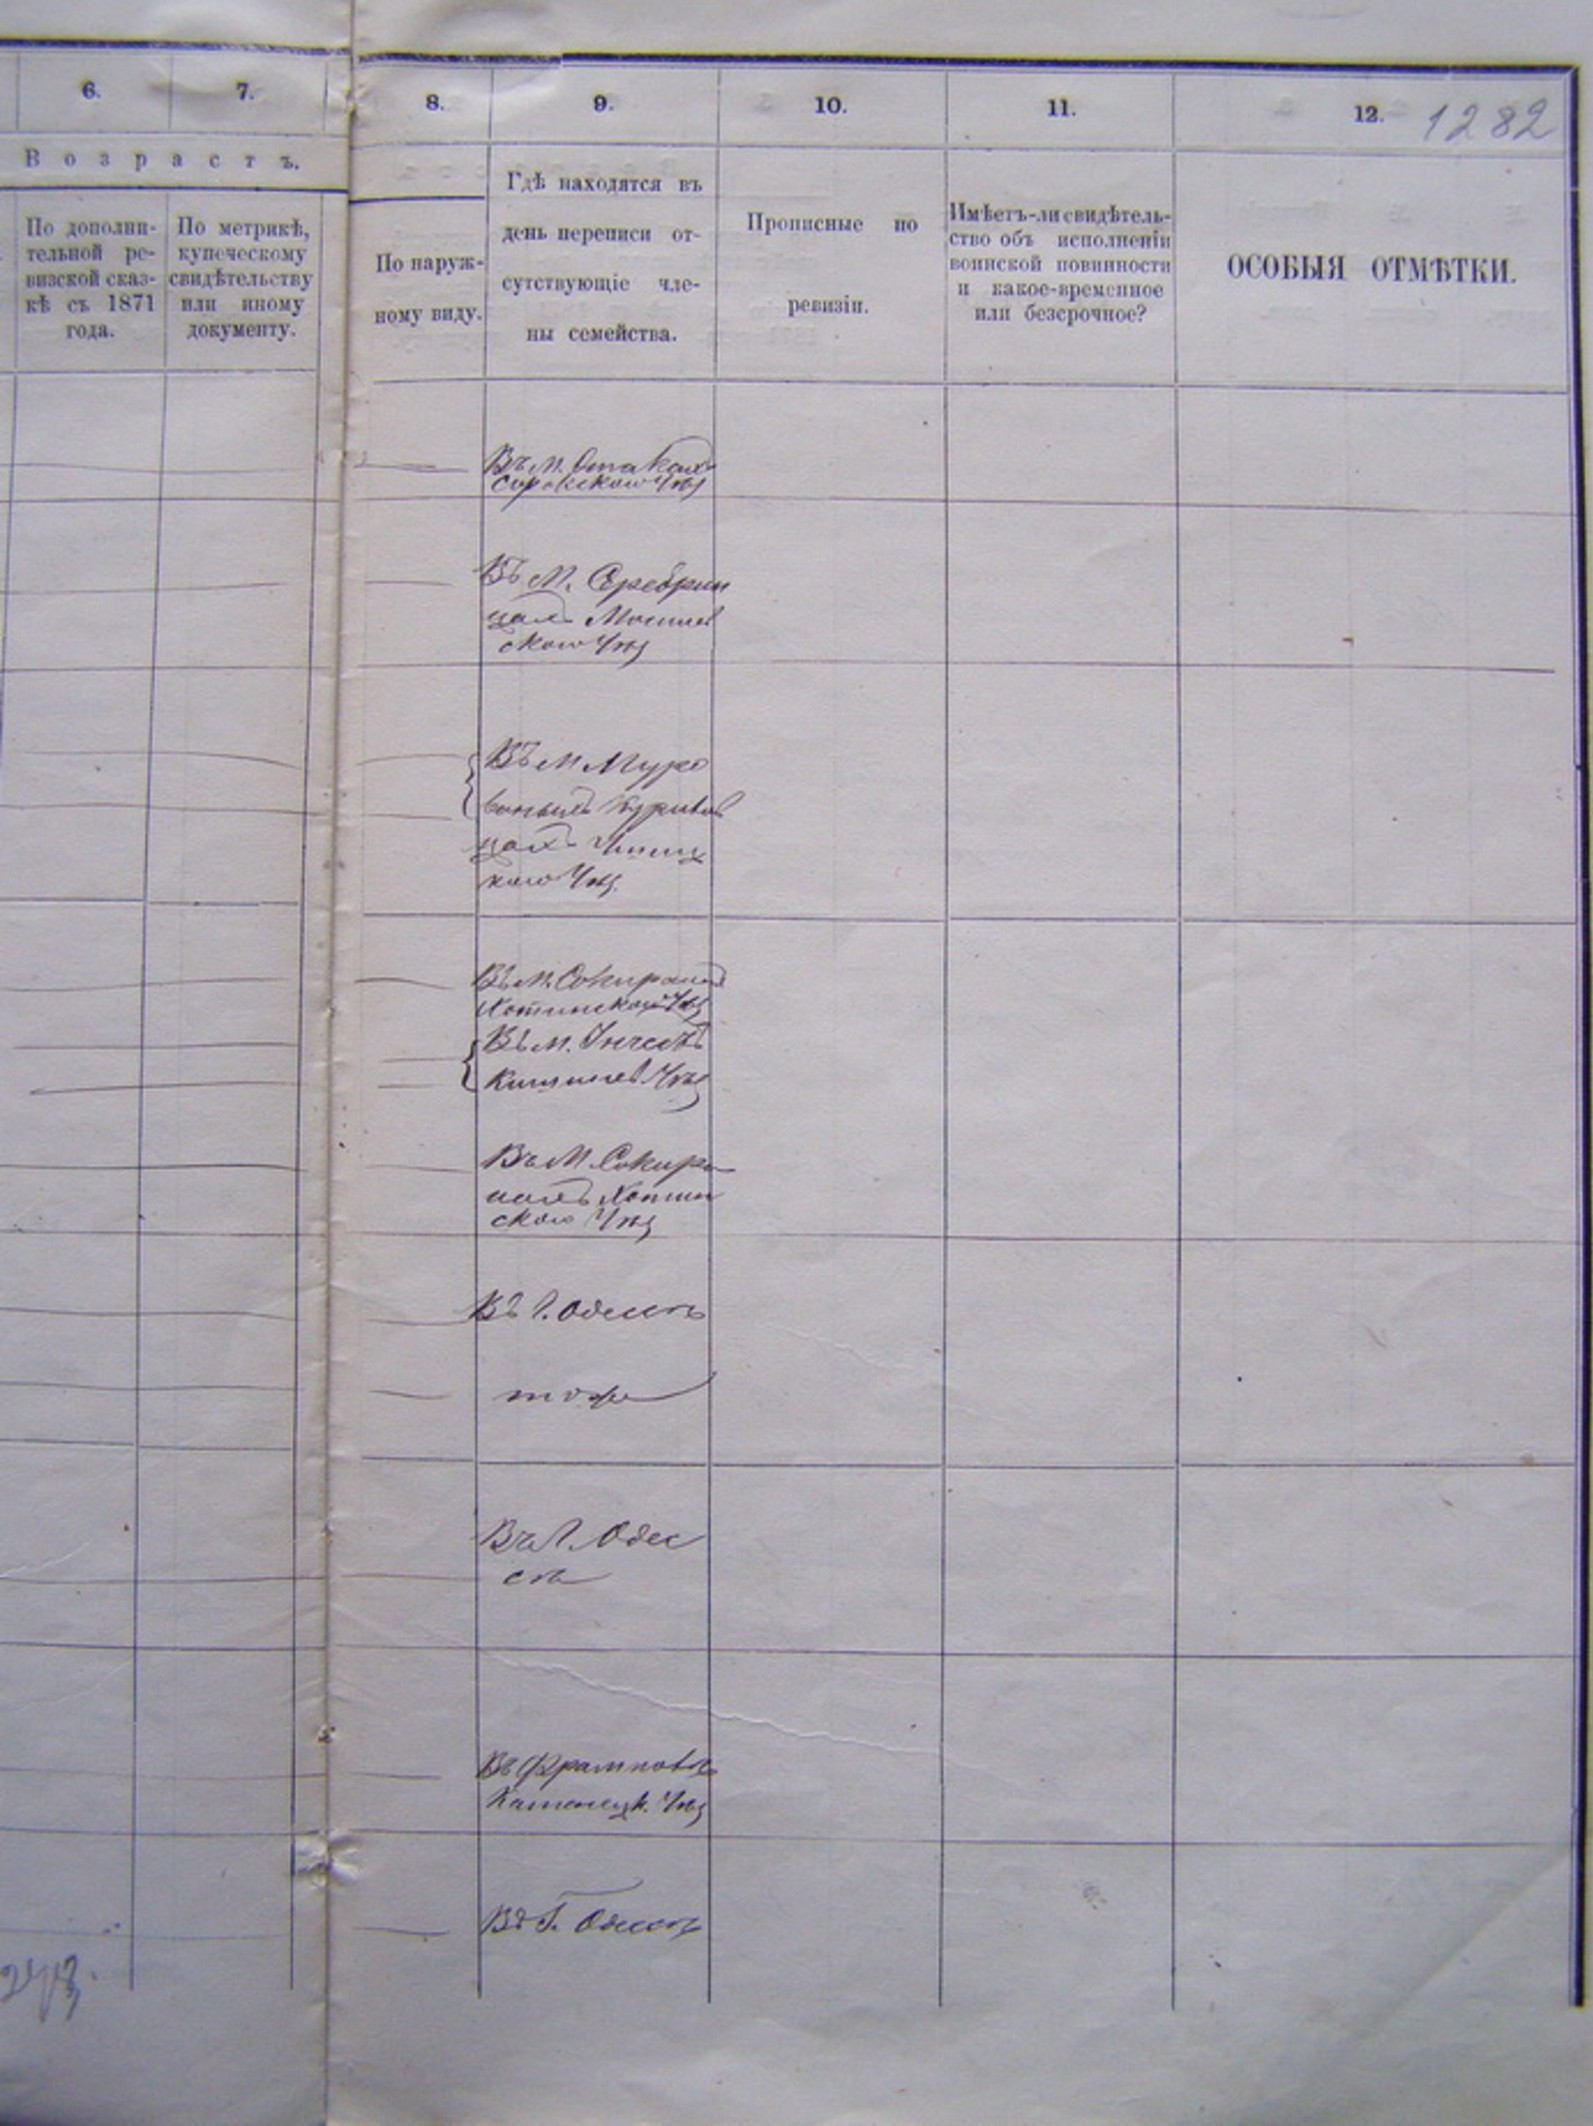 6.
7.
8.
9.
10.
11.
12.
1282
Возрастъ.
По дополни-
тельной ре-
визской сказ-
кѣ съ 1871
года.
По метрикѣ,
купеческому
свидѣтельству
или иному
документу.
По наруж-
ному виду.
Гдѣ находятся въ
день переписи от-
сутствующіе чле-
ны семейства.
Прописные по
ревизіи.
Имѣетъ-ли свидѣтель-
ство объ исполненіи
воинской повинности
и какое-временное
или безсрочное?
ОСОБЫЯ ОТМѢТКИ.
Въ м. Отакахъ
Сорокскаго Уѣз
Въ м. Серебрин
цахъ Могилев
скаго Уѣз
Въ м Муро
ваныхъ Курилов
цахъ Ушиц
каго Уѣз.
Въ м. Сокиранахъ
Хотинскаго Уѣз
Въ м.
Кишинев. Уѣз
Въ м. Сокира
нахъ Хотин
скаго Уѣз
Въ г. Одессѣ
тоже
Въ г. Одес
сѣ
Въ Фрамповкѣ
Каменецк. Уѣз
Въ г. Одессѣ